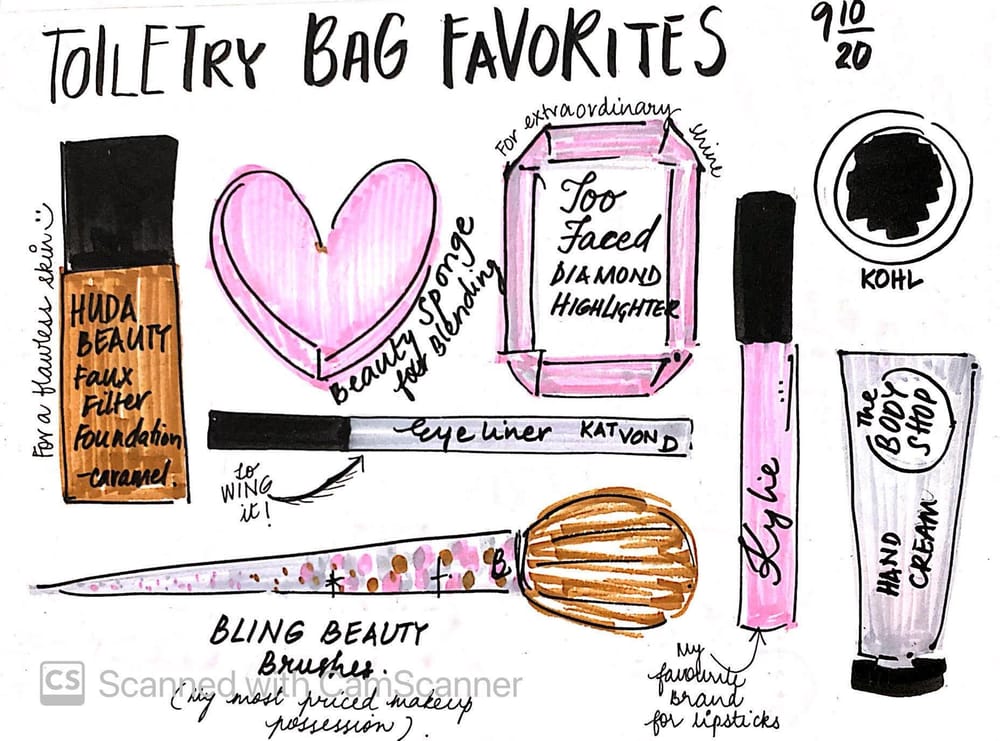 TOILETRY BAG FAVORITES
9 10/20
For a flawless skin :)
HUDA
BEAUTY
Faux
Filter
Foundation
-caramel.
Beauty Sponge
for Blending
For extraordinary shine
Too
Faced
DIAMOND
HIGHLIGHTER
KOHL
Eye liner KAT VON D
to
WING
it!
Kylie
My
favourite
Brand
for lipsticks
The
BODY
SHOP
HAND
CREAM
B
BLING BEAUTY
Brushes.
(My most priced makeup
possession).
CS Scanned with CamScanner